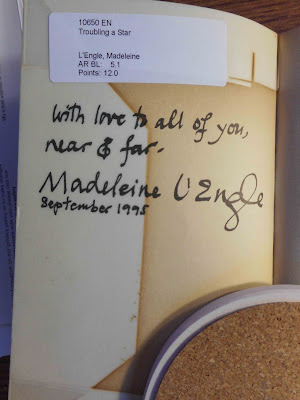 10650 EN
Troubling a Star
L'Engle, Madeleine
AR BL: 5.1
Points: 12.0
With love to all of you,
near & far-
Madeleine L'Engle
September 1995